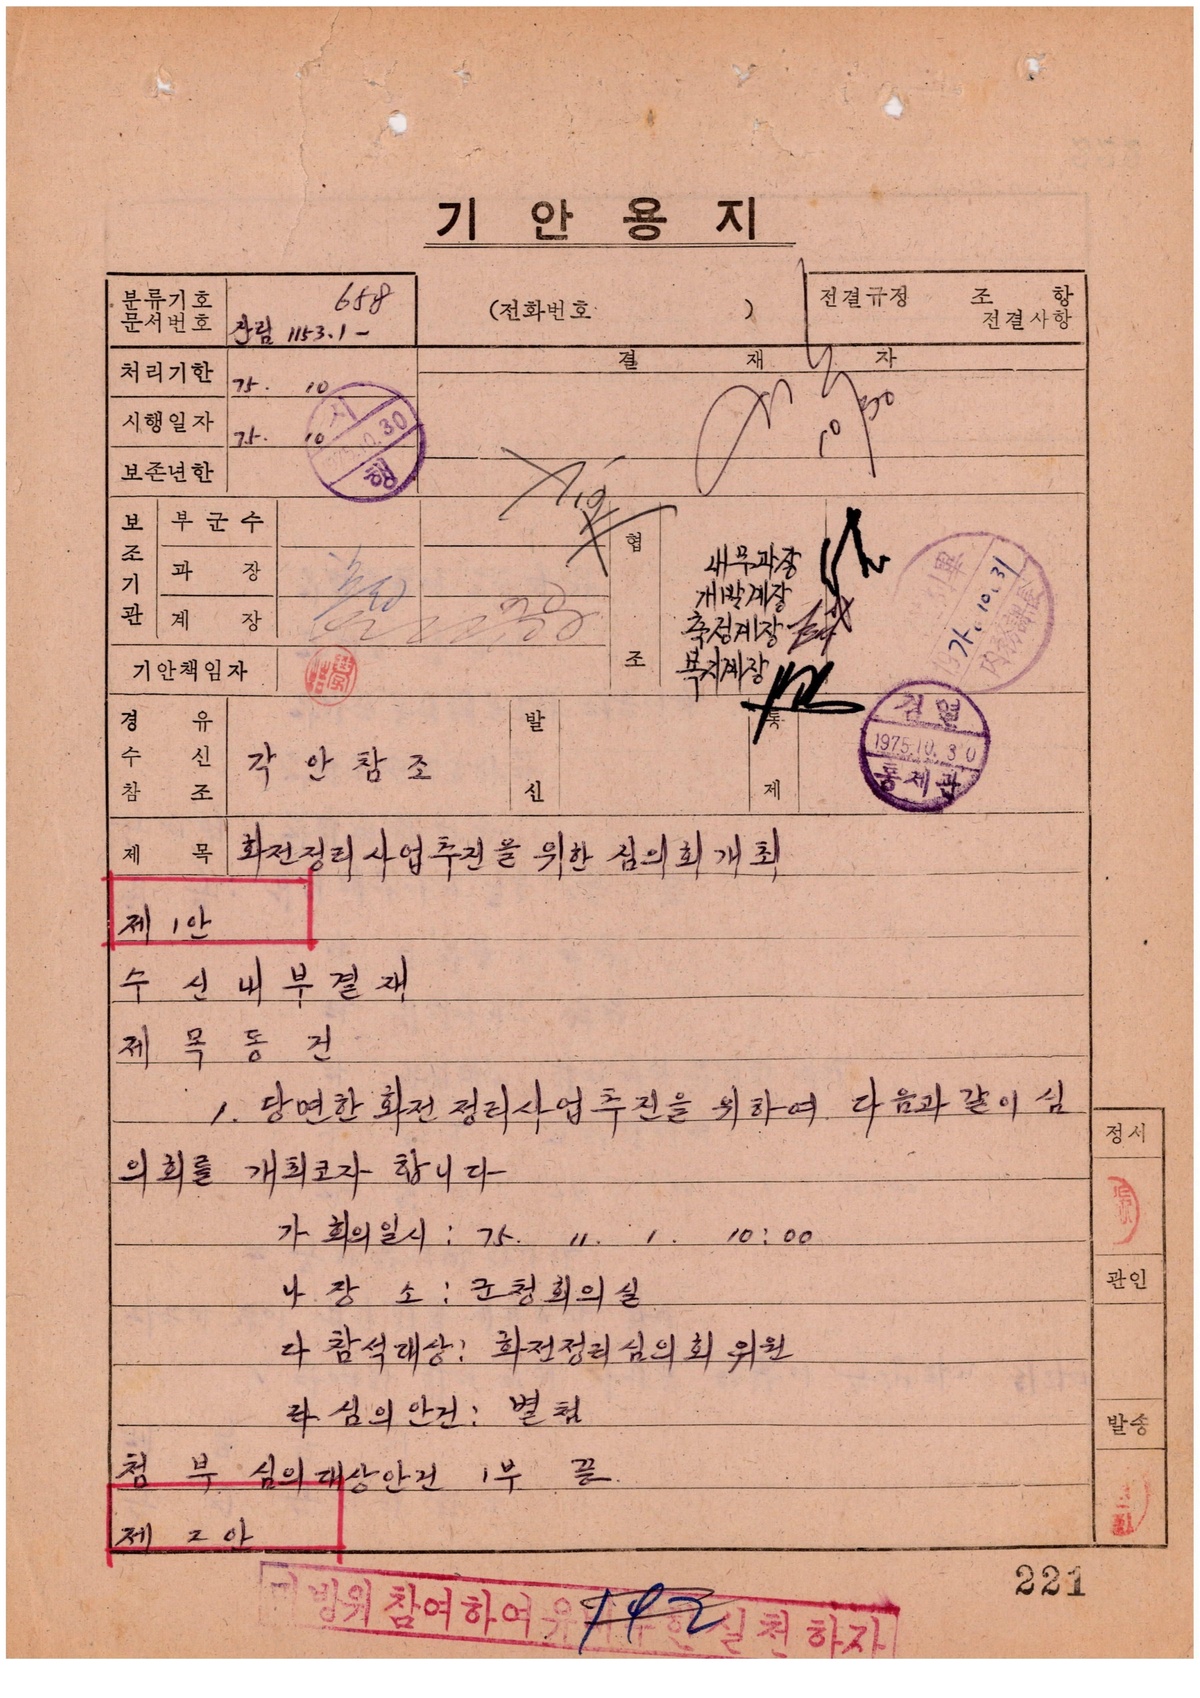 기 안 용 지
분류기호
문서번호
658
산림 1153.1-
(전화번호 )
전결규정 조 항
전결사항
처리기한 75. 10
결 재 자
시행일자 75. 10
시
10.30
행
10 30
보존년한
보조기관
부 군 수
과 장
계 장
협조
내무과장
개발계장
축정계장
복지계장
10.31
기안책임자
경 유
수 신
참 조
각 안 참 조
발신
통제
검열
1975.10.30
통제관
제 목 화전정리사업추진을 위한 심의회개최
제 1안
수 신 내부결재
제 목 동 건
1. 당면한 화전정리사업추진을 위하여 다음과 같이 심
의회를 개최코자 합니다
가 회의일시 : 75. 11. 1. 10:00
나 장 소 : 군청회의실
다 참석대상 : 화전정리심의회 위원
라 심의안건 : 별첨
첨 부 심의대상안건 1부 끝.
제 2 안
정서
관인
발송
221
참여하여
실천하자
142